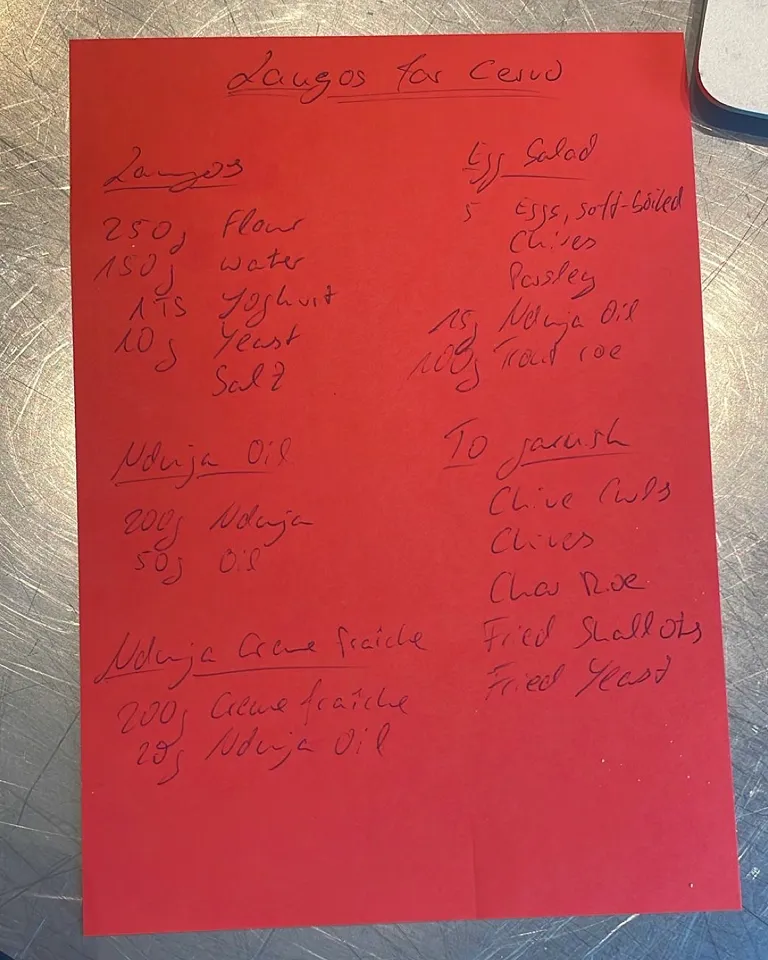 Langos for Cervo
Langos
250g Flour
150g water
1 TS Yoghurt
10g Yeast
Salz
Nduja Oil
200g Nduja
50g Oil
Nduja Creme fraîche
200g Creme fraîche
20g Nduja Oil
Egg Salad
5 Eggs, soft-boiled
Chives
Parsley
15g Nduja Oil
100g Trout roe
To garnish
Chive Curls
Chives
Char Roe
Fried Shallots
Fried Yeast